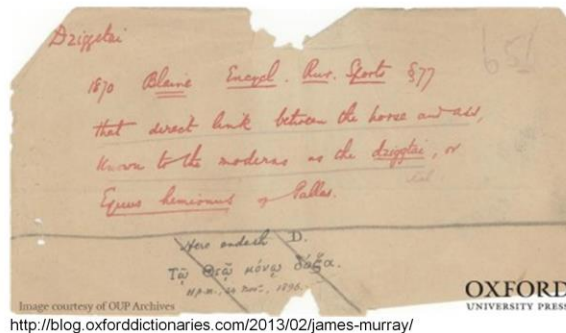 Dziggetai
651
1870 Blaine Encycl. Rur. Sports §77
that direct link between the horse and ass,
known to the moderns as the dziggtai, or
Equus hemionus of Pallas.
Here endeth D.
Τῷ Θεῷ μόνῳ δόξα.
24 Nov., 1896.
Image courtesy of OUP Archives
OXFORD
UNIVERSITY PRESS
http://blog.oxforddictionaries.com/2013/02/james-murray/